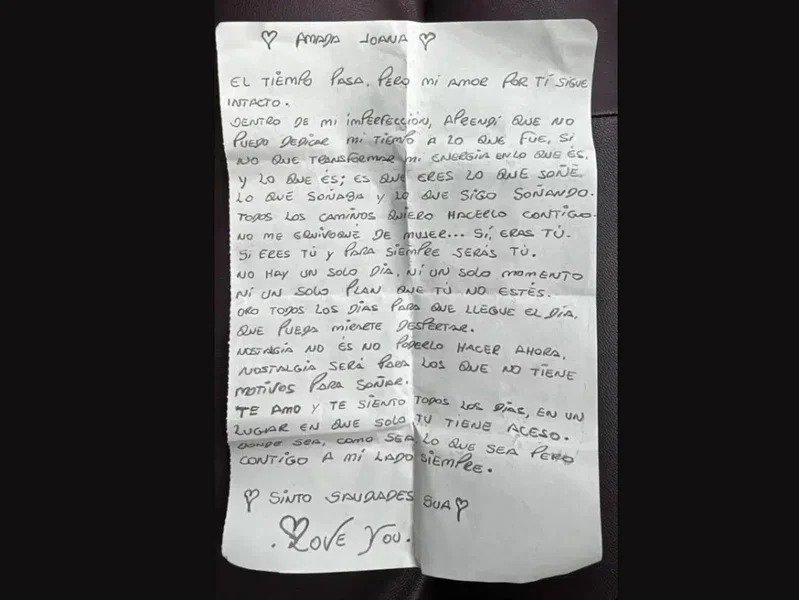 ♡ AMADA JOANA ♡
EL TIEMPO PASA, PERO MI AMOR POR TÍ SIGUE
INTACTO.
DENTRO DE MI IMPERFECCIÓN, APRENDÍ QUE NO
PUEDO DEDICAR MI TIEMPO A LO QUE FUE, SÍ
NO QUE TRANSFORMAR MI ENERGÍA EN LO QUE ÉS.
Y LO QUE ÉS; ES QUE ERES LO QUE SOÑÉ.
LO QUE SOÑABA Y LO QUE SIGO SOÑANDO.
TODOS LOS CAMINOS QUIERO HACERLO CONTIGO.
NO ME EQUIVOQUÉ DE MUJER... SÍ, ERAS TÚ.
SI ERES TÚ Y PARA SIEMPRE SERÁS TÚ.
NO HAY UN SOLO DÍA, NI UN SOLO MOMENTO
NI UN SOLO PLAN QUE TÚ NO ESTÉS.
ORO TODOS LOS DÍAS PARA QUE LLEGUE EL DÍA,
QUE PUEDA MIRARTE DESPERTAR.
NOSTALGIA NO ÉS NO PODERLO HACER AHORA,
NOSTALGIA SERÁ PARA LOS QUE NO TIENE
MOTIVOS PARA SOÑAR.
TE AMO Y TE SIENTO TODOS LOS DÍAS, EN UN
LUGIAR EN QUE SOLO TU TIENE ACESO.
DONDE SEA, COMO SEA, LO QUE SEA PERO
CONTIGO A MI LADO SIEMPRE.
♡ SINTO SAUDADES SUA ♡
. LOVE YOU.